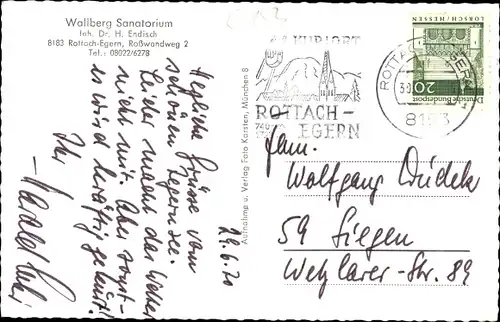 Wallberg Sanatorium
Inh. Dr. H. Endisch
8183 Rottach-Egern, Roßwandweg 2
Tel.: 08022/6278
Herzliche Grüsse vom
schönen Tegernsee.
Leider macht das Wetter
nicht mit. Aber sonst
es wird kräftig gekurt!
Ihr
29.6.70
Aufnahme u. Verlag Foto Karsten, München 8
KURORT
ROTTACH-
EGERN
ROTTACH-EGERN
8183
LORSCH/HESSEN
20
Deutsche Bundespost
Fam.
Wolfgang
59 Siegen
Wetzlarer-Str. 89